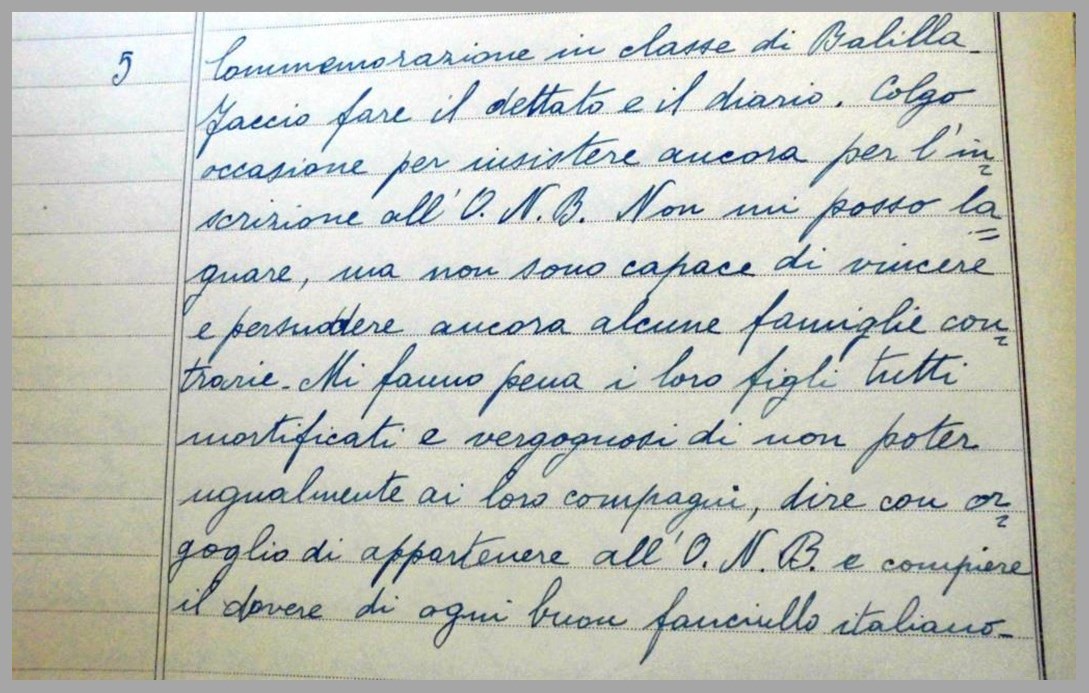 5 Commemorazione in classe di Balilla.
Faccio fare il dettato e il diario. Colgo
occasione per insistere ancora per l'in=
scrizione all'O.N.B. Non mi posso la=
gnare, ma non sono capace di vincere
e persuadere ancora alcune famiglie con=
trarie. Mi fanno pena i loro figli tutti
mortificati e vergognosi di non poter
ugualmente ai loro compagni, dire con or=
goglio di appartenere all'O.N.B. e compiere
il dovere di ogni buon fanciullo italiano.